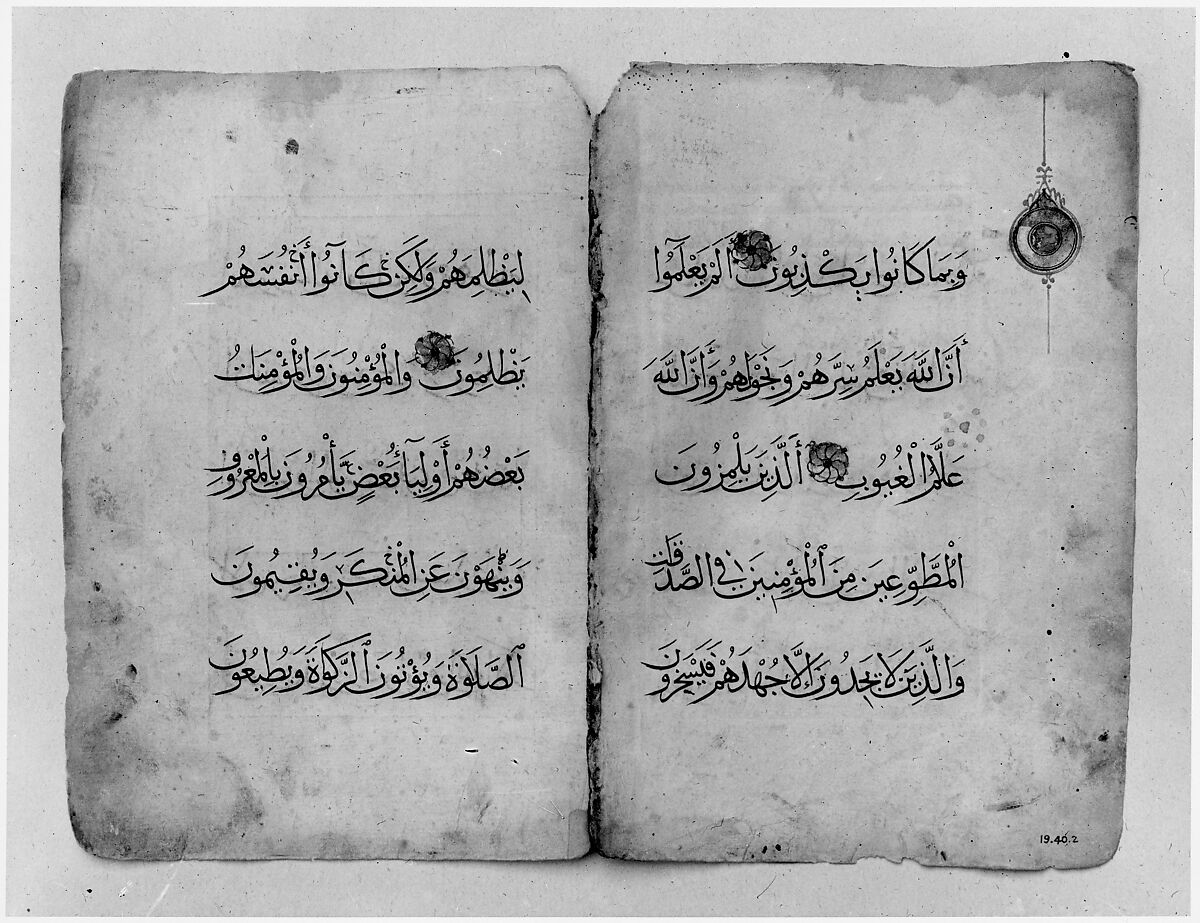 وَبِمَا كَانُوا يَكْذِبُونَ أَلَمْ يَعْلَمُوا
أَنَّ اللَّهَ يَعْلَمُ سِرَّهُمْ وَنَجْوَاهُمْ وَأَنَّ اللَّهَ
عَلَّامُ الْغُيُوبِ الَّذِينَ يَلْمِزُونَ
الْمُطَّوِّعِينَ مِنَ الْمُؤْمِنِينَ فِي الصَّدَقَاتِ
وَالَّذِينَ لَا يَجِدُونَ إِلَّا جُهْدَهُمْ فَيَسْخَرُونَ
لِيَظْلِمَهُمْ وَلَكِنْ كَانُوا أَنْفُسَهُمْ
يَظْلِمُونَ وَالْمُؤْمِنُونَ وَالْمُؤْمِنَاتُ
بَعْضُهُمْ أَوْلِيَاءُ بَعْضٍ يَأْمُرُونَ بِالْمَعْرُوفِ
وَيَنْهَوْنَ عَنِ الْمُنْكَرِ وَيُقِيمُونَ
الصَّلَوٰةَ وَيُؤْتُونَ الزَّكَوٰةَ وَيُطِيعُونَ
19.40.2